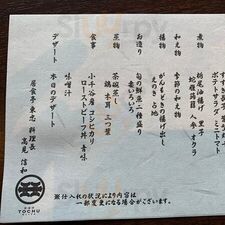 すすき
ポテトサラダ ミニトマト
煮物
栃尾油揚げ 里子
蛇腹蒟蒻 人参 オクラ
和え物
季節の和え物
揚物
がんもどきの揚げ出し
えのき 占地
お造り
旬の鮮魚二種盛り
妻いろいろ
蒸物
茶碗蒸し
鶏 木耳 三つ葉
食事
小千谷産 コシヒカリ
ローストビーフ丼 青味
味噌汁
デザート
本日のデザート
居食亭 東忠 料理長
高見 信和
TOCHU
※仕入れの状況により内容は
一部変更になる場合がございます。